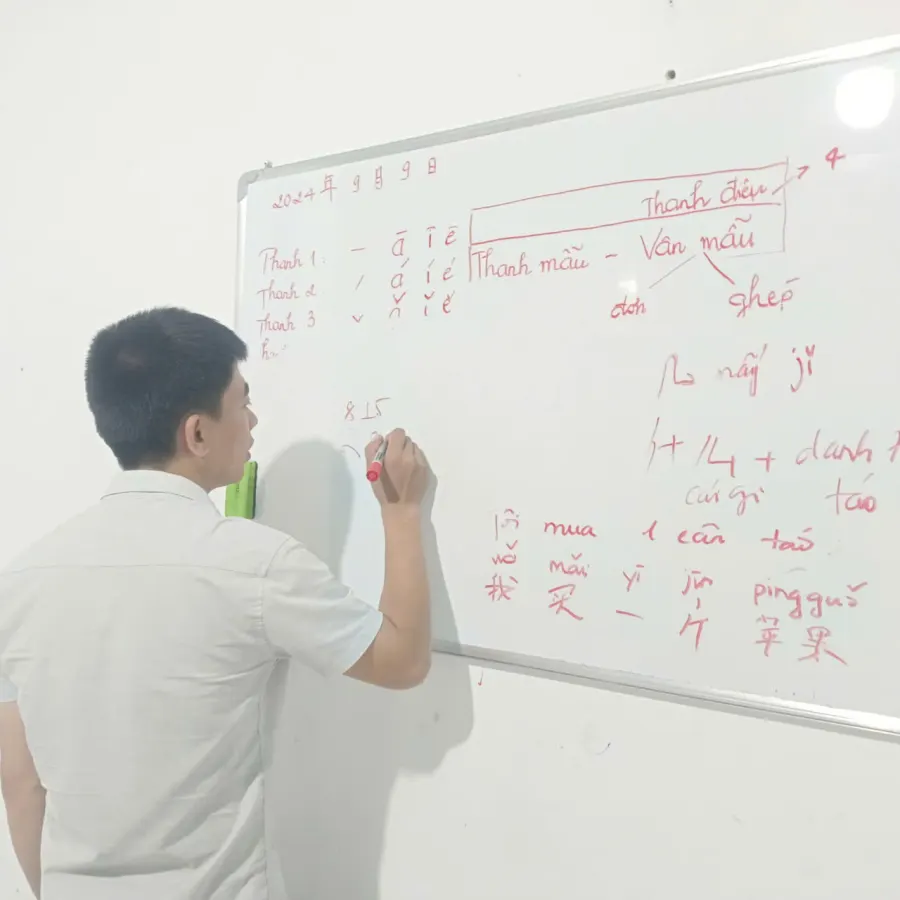 2024年 9月 9日
Thanh điệu → 4
Thanh mẫu - Vân mẫu
đơn ghép
Thanh 1 : — ā ī ē
Thanh 2 ˊ á í é
Thanh 3 ˇ ǐ ě
几 mấy jǐ
815
+ 斤 + danh
cái gì táo
tôi mua 1 cân táo
wǒ mǎi yī jīn píngguǒ
我 买 一 斤 苹果